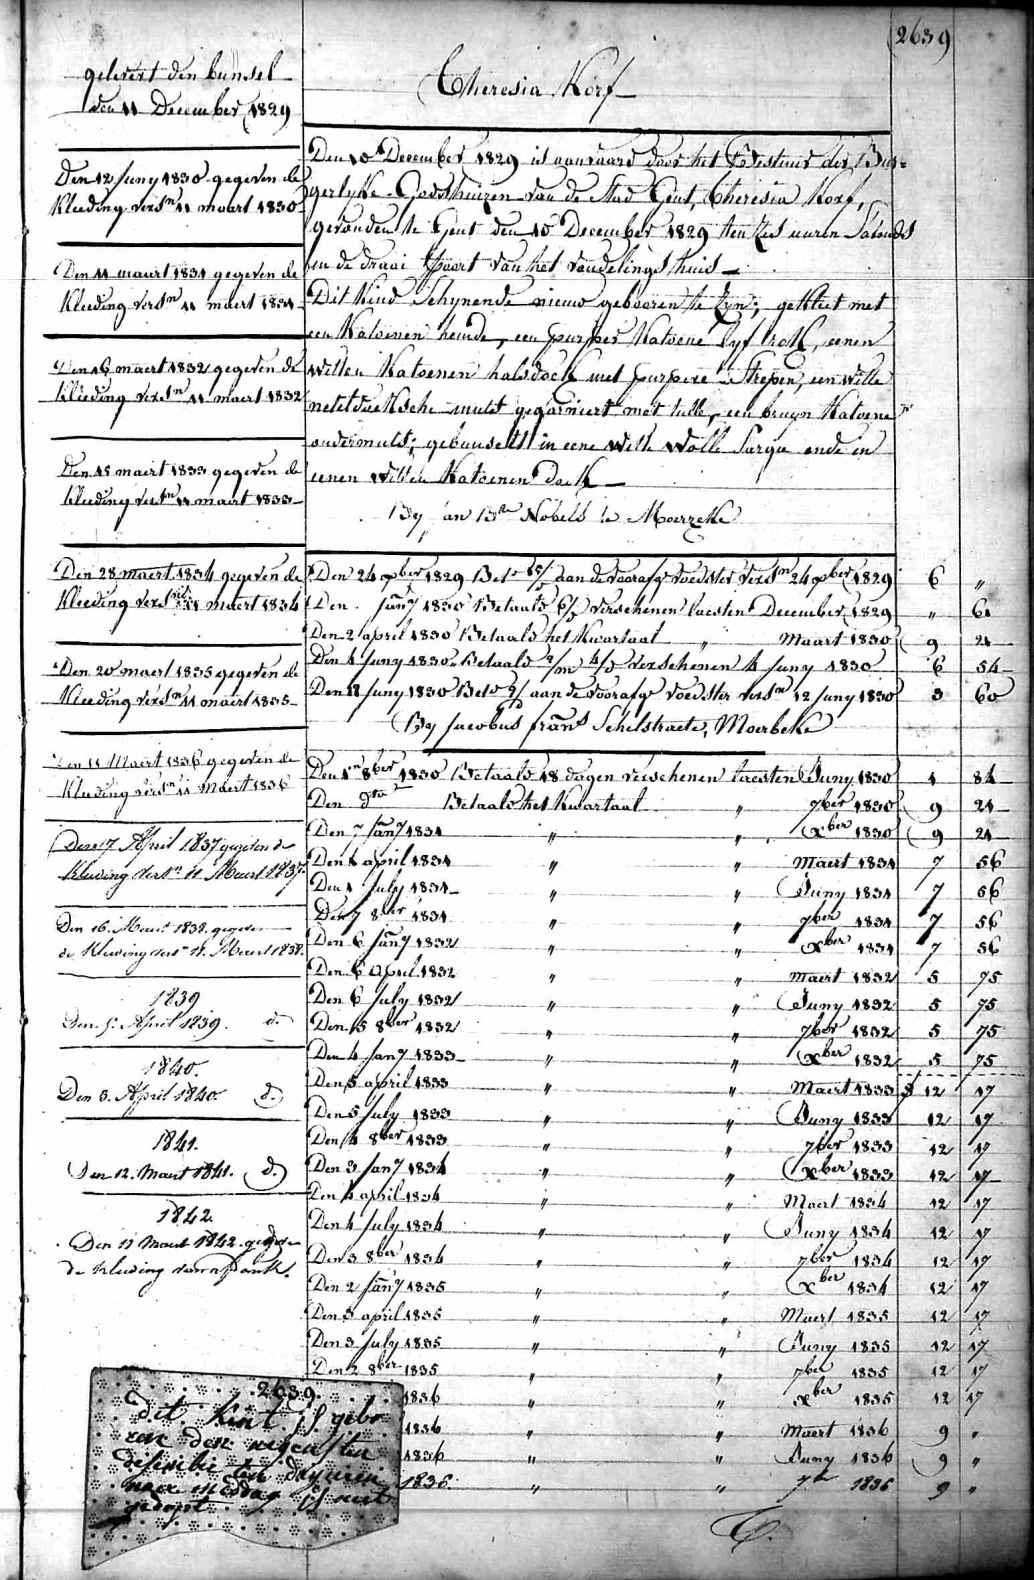 2639
gelevert den bunsel
den 11 December 1829
Den 12 Juny 1830 gegeven de
Kleeding versn 11 maart 1830
Den 11 maart 1831 gegeven de
Kleeding versn 11 maart 1831
Den 16 maert 1832 gegeven de
Kleeding versn 11 maert 1832
Den 15 maert 1833 gegeven de
kleeding versn 11 maart 1833
Den 28 maert 1834 gegeven de
Kleeding versn 11 maert 1834
Den 20 maert 1835 gegeven de
Kleeding versn 11 maert 1835
Den 11 Maert 1836 gegeven de
Kleeding versn 11 Maert 1836
Den 7 April 1837 gegeven de
Kleeding versn 11 Maert 1837
Den 16. Maert 1838. gegeven
de Kleeding versn 11. Maert 1838.
1839
Den 5. April 1839. d.
1840.
Den 3. April 1840. d.
1841.
Den 12. Maert 1841. d.
1842.
Den 11 Maert 1842. gegeven
de kleeding
Theresia Korf
Den 10 December 1829 is aanvaard door het Bestuur der Bur-
gerlyke Godshuizen van de Stad Gent, Theresia Korf,
gevonden te Gent den 10 December 1829 ten zes uuren s'avonds
in de draai Poort van het vondelings huis
Dit Kind Schynende nieuw gebooren te zyn; gekleet met
een Katoenen hemde, een purper Katoene lyf rok, eenen
witten Katoenen halsdoek met purpere Strepen, een witte
neteldoeksche muts gegarniert met tulle, een bruyn Katoene
ondermuts; gebunselt in eene witte wolle Sargie ende in
eenen witten Katoenen Doek
By Jan Bte Nobels te Moerzeke
Den 24 xber 1829 Bete aan de voorafge voedster versn 24 xber 1829 6 "
Den Jany 1830 Betaald verschenen laesten December 1829 " 61
Den 2 april 1830 Betaald het Kwartaal " Maart 1830 9 24
Den 4 Juny 1830 Betaald 2/m 4/d verschenen 4 Juny 1830 6 54
Den 18 Juny 1830 Bete aan de voorafge voedster versn 12 Juny 1830 3 60
By Jacobus frans Schelstraete, Moerbeke
Den 1n 8ber 1830 Betaald 18 dagen verschenen laesten Juny 1830 1 84
Den dto Betaald het Kwartaal " 7ber 1830 9 24
Den 7 Jany 1831 " " xber 1830 9 24
Den 1 april 1831 " " Maert 1831 7 56
Den 1 July 1831 " " Juny 1831 7 56
Den 7 8ber 1831 " " 7ber 1831 7 56
Den 6 Jany 1832 " " xber 1831 7 56
Den 6 April 1832 " " maert 1832 5 75
Den 6 July 1832 " " Juny 1832 5 75
Den 15 8ber 1832 " " 7ber 1832 5 75
Den 4 Jany 1833 " " xber 1832 5 75
Den 5 april 1833 " " Maert 1833 12 17
Den 5 July 1833 " " Juny 1833 12 17
Den 4 8ber 1833 " " 7ber 1833 12 17
Den 3 Jany 1834 " " xber 1833 12 17
Den 4 april 1834 " " Maert 1834 12 17
Den 4 July 1834 " " Juny 1834 12 17
Den 3 8ber 1834 " " 7ber 1834 12 17
Den 2 Jany 1835 " " xber 1834 12 17
Den 3 april 1835 " " Maert 1835 12 17
Den 3 July 1835 " " Juny 1835 12 17
Den 2 8ber 1835 " " 7ber 1835 12 17
1836 " " xber 1835 12 17
1836 " " Maert 1836 9 "
1836 " " Juny 1836 9 "
1836. " " 7b 1836 9 "
2639
dit kint is gebo
ren den
desember tien
naer middag is niet
gedopt